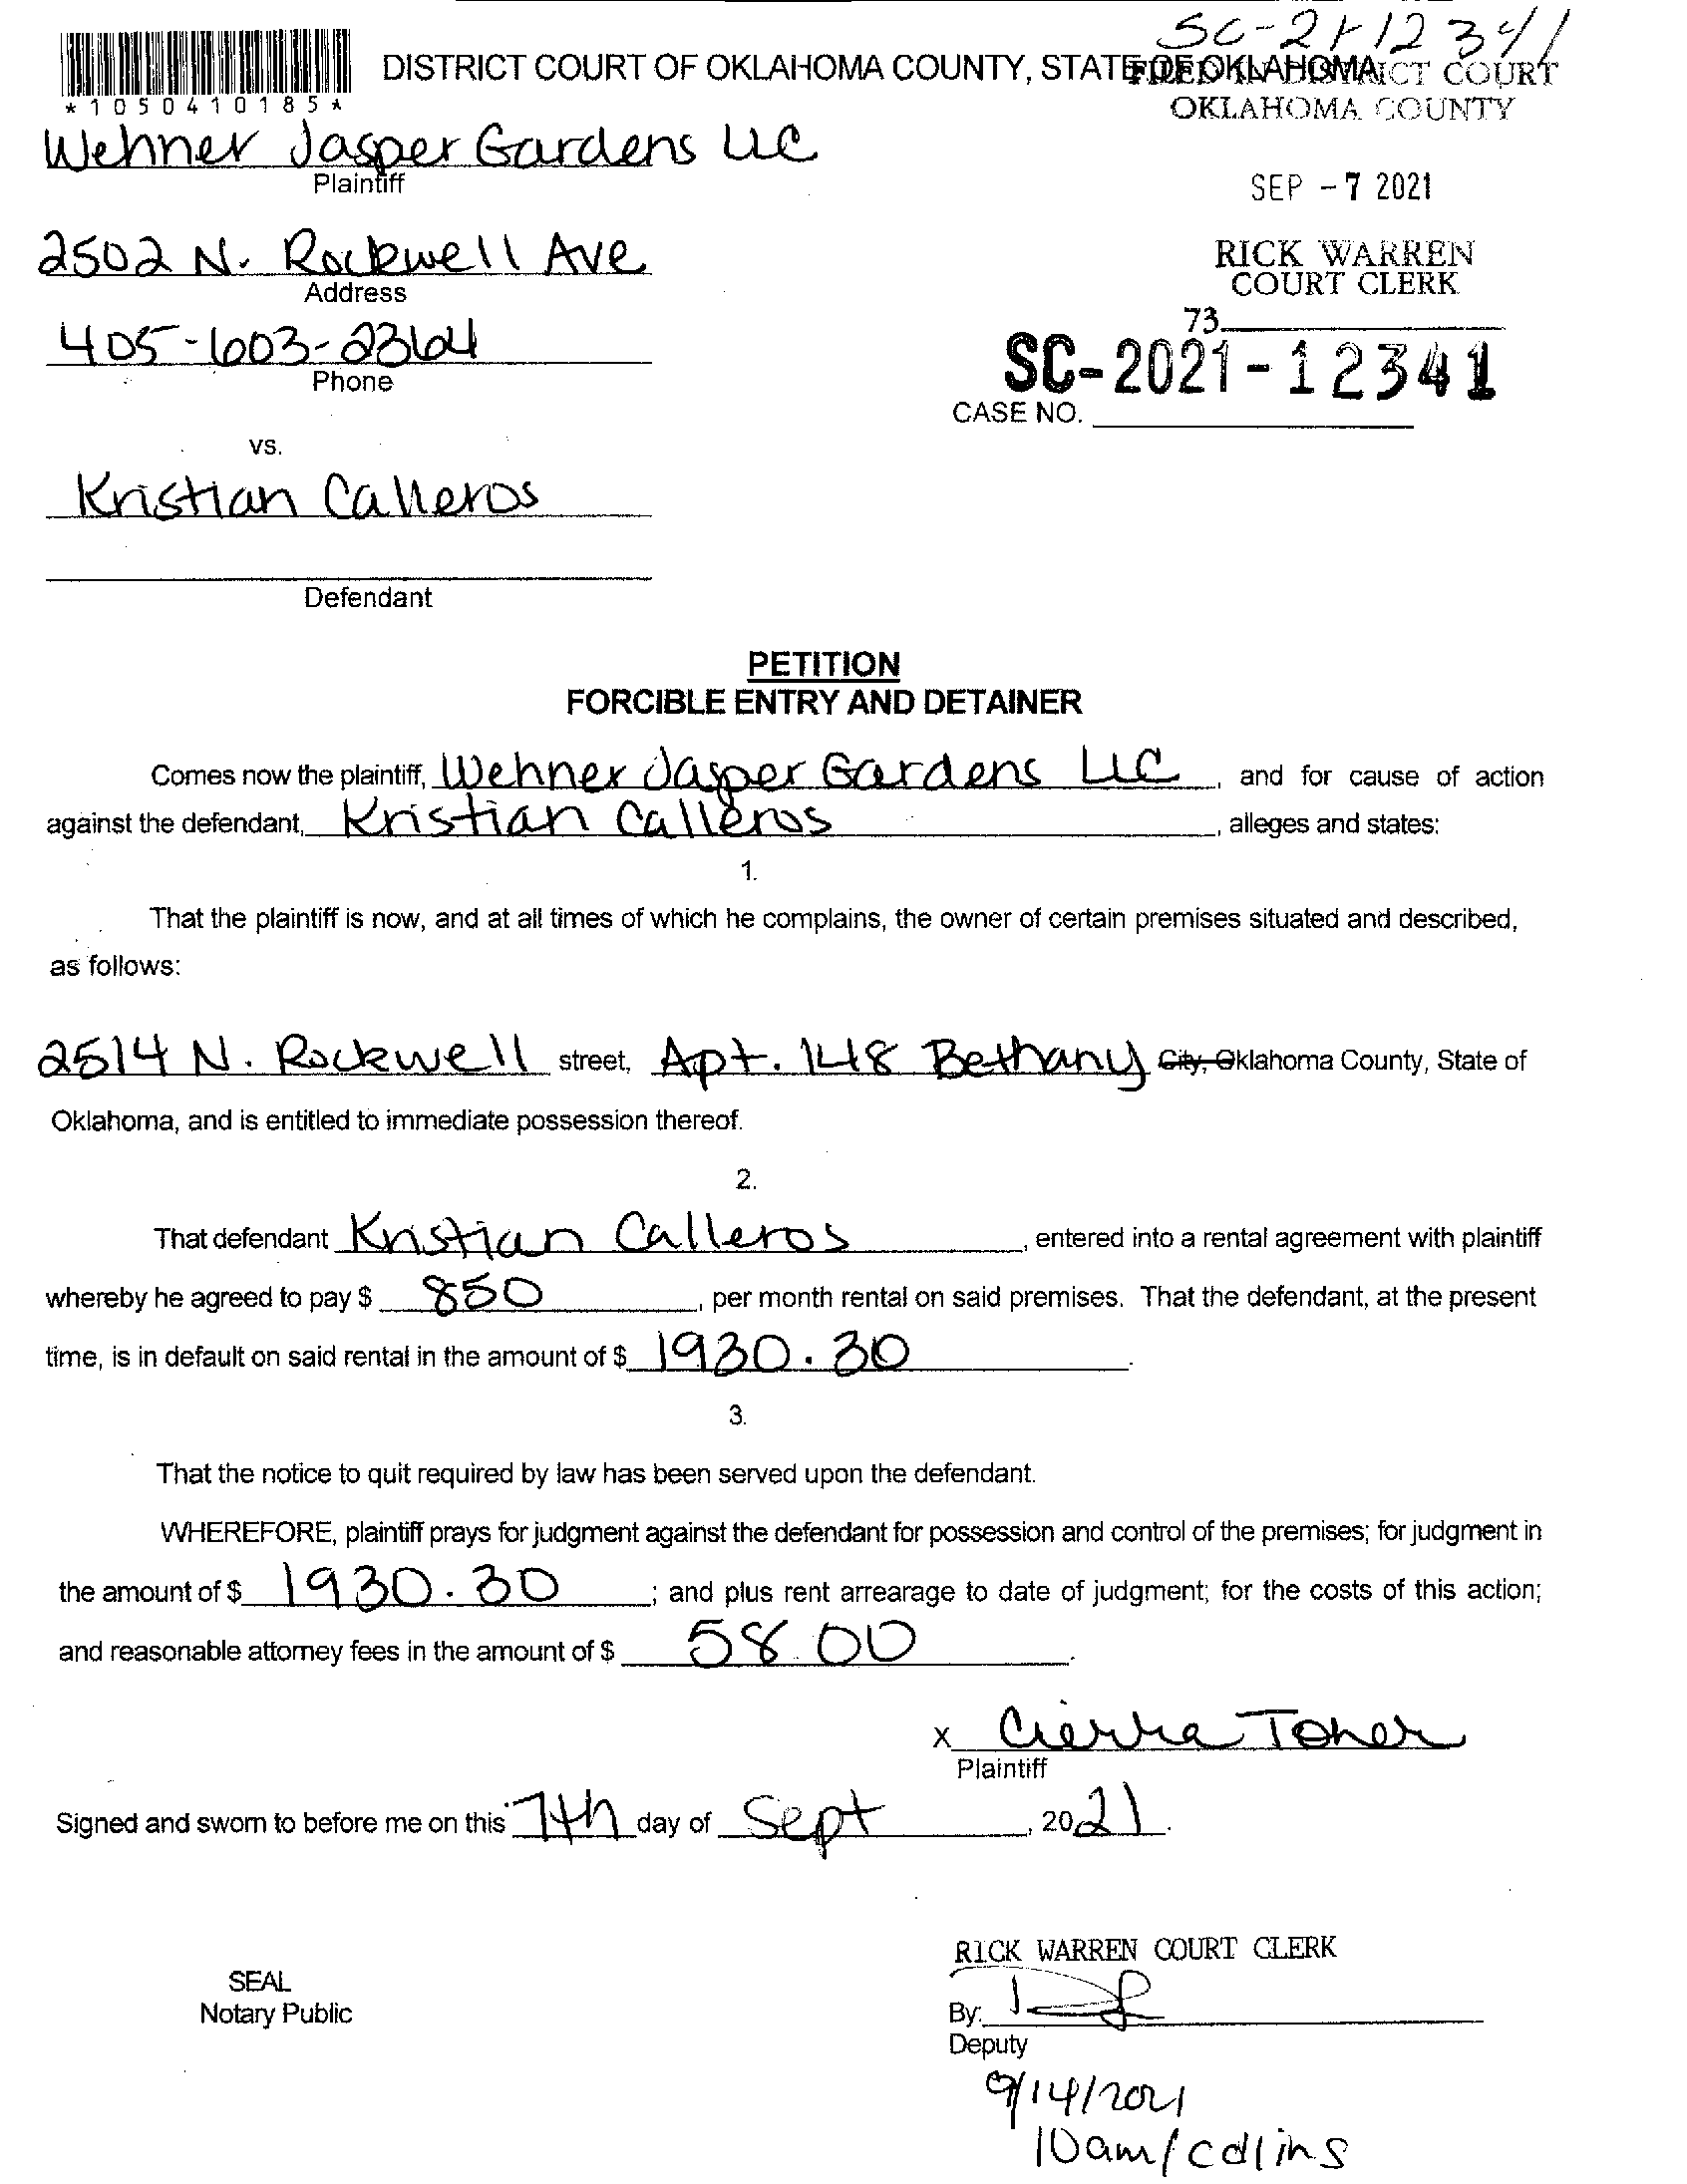 SC-21-12341
DISTRICT COURT OF OKLAHOMA COUNTY, STATE OF OKLAHOMA
FILED IN DISTRICT COURT
OKLAHOMA COUNTY
*1050410185*
Wehner Jasper Gardens LLC
Plaintiff
SEP -7 2021
2502 N. Rockwell Ave
Address
RICK WARREN
COURT CLERK
405-603-2364
Phone
73
SC-2021-12341
CASE NO.
vs.
Kristian Calleros
Defendant
PETITION
FORCIBLE ENTRY AND DETAINER
Comes now the plaintiff, Wehner Jasper Gardens LLC, and for cause of action
against the defendant, Kristian Calleros, alleges and states:
1.
That the plaintiff is now, and at all times of which he complains, the owner of certain premises situated and described,
as follows:
2514 N. Rockwell street, Apt. 148 Bethany City, Oklahoma County, State of
Oklahoma, and is entitled to immediate possession thereof.
2.
That defendant Kristian Calleros, entered into a rental agreement with plaintiff
whereby he agreed to pay $ 850, per month rental on said premises. That the defendant, at the present
time, is in default on said rental in the amount of $ 1930.30.
3.
That the notice to quit required by law has been served upon the defendant.
WHEREFORE, plaintiff prays for judgment against the defendant for possession and control of the premises; for judgment in
the amount of $ 1930.30; and plus rent arrearage to date of judgment; for the costs of this action;
and reasonable attorney fees in the amount of $ 58.00.
x Cierra Toner
Plaintiff
Signed and sworn to before me on this 7th day of Sept, 2021.
RICK WARREN COURT CLERK
SEAL
Notary Public
By:
Deputy
9/14/2021
10am/collins